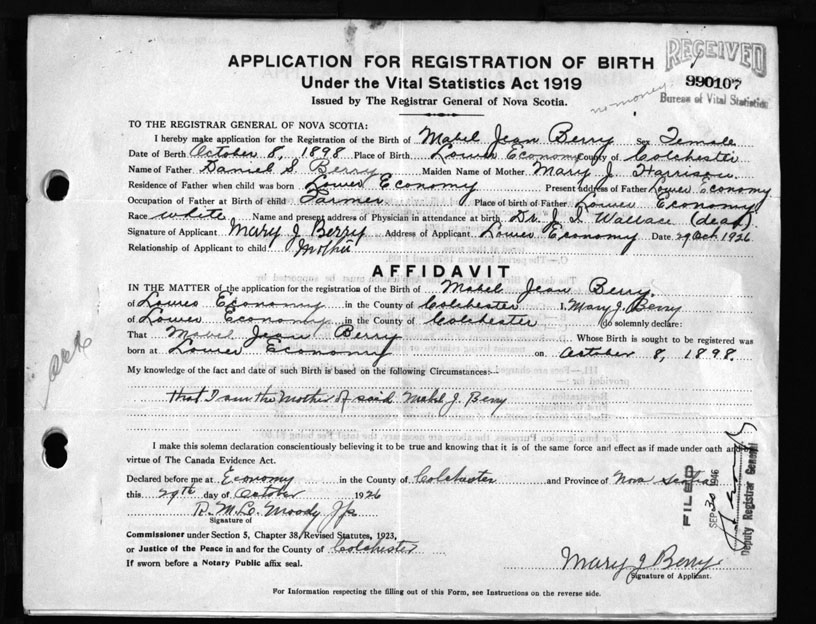 APPLICATION FOR REGISTRATION OF BIRTH
Under the Vital Statistics Act 1919
Issued by The Registrar General of Nova Scotia.
RECEIVED
990107
Bureau of Vital Statistics
no money
TO THE REGISTRAR GENERAL OF NOVA SCOTIA:
I hereby make application for the Registration of the Birth of Mabel Jean Berry Sex Female
Date of Berth October 8, 1898 Place of Birth Lower Economy County of Colchester
Name of Father Daniel S. Berry Maiden Name of Mother Mary J. Harrison
Residence of Father when child was born Lower Economy Present address of Father Lower Economy
Occupation of Father at Birth of child Farmer Place of birth of Father Lower Economy
Race white Name and present address of Physician in attendance at birth Dr. Wallace (dead).
Signature of Applicant Mary J Berry Address of Applicant Lower Economy Date 29 Oct. 1926
Relationship of Applicant to child Mother
AFFIDAVIT
IN THE MATTER of the application for the registration of the Birth of Mabel Jean Berry
of Lower Economy in the County of Colchester I, Mary J. Berry
of Lower Economy in the County of Colchester do solemnly declare:
That Mabel Jean Berry Whose Birth is sought to be registered was
born at Lower Economy on October 8, 1898.
My knowledge of the fact and date of such Birth is based on the following Circumstances:—
that I am the Mother of said Mabel J. Berry
I make this solemn declaration conscientiously believing it to be true and knowing that it is of the same force and effect as if made under oath and by
virtue of The Canada Evidence Act.
Declared before me at Economy in the County of Colchester and Province of Nova Scotia
this 29th day of October 1926
Moody Jp
Signature of
Commissioner under Section 5, Chapter 38/Revised Statutes, 1923,
or Justice of the Peace in and for the County of Colchester
If sworn before a Notary Public affix seal.
Mary J Berry
Signature of Applicant.
FILED
SEP 30 1946
Deputy Registrar General
For Information respecting the filling out of this Form, see Instructions on the reverse side.